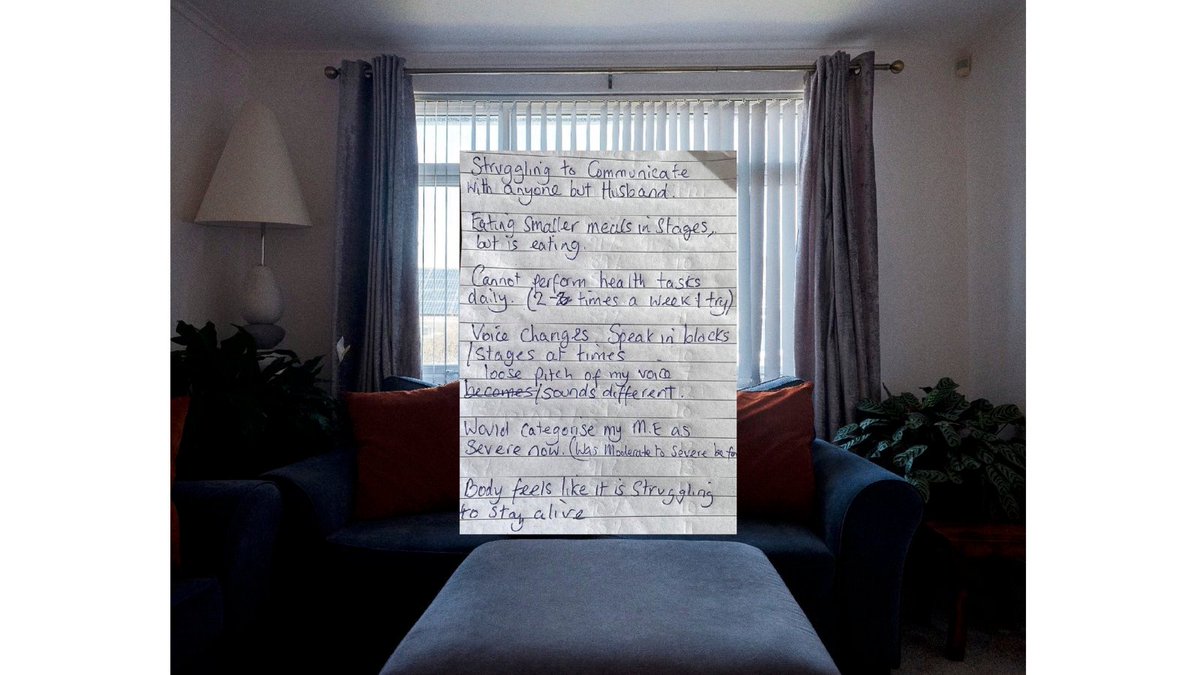 Struggling to Communicate
with anyone but Husband.
Eating smaller meals in stages,
but is eating.
Cannot perform health tasks
daily. (2-3 times a week I try)
Voice changes. Speak in blocks
/stages at times
loose pitch of my voice
becomes/sounds different.
Would categorise my M.E as
Severe now. (Was Moderate to Severe befor
Body feels like it is struggling
to stay alive